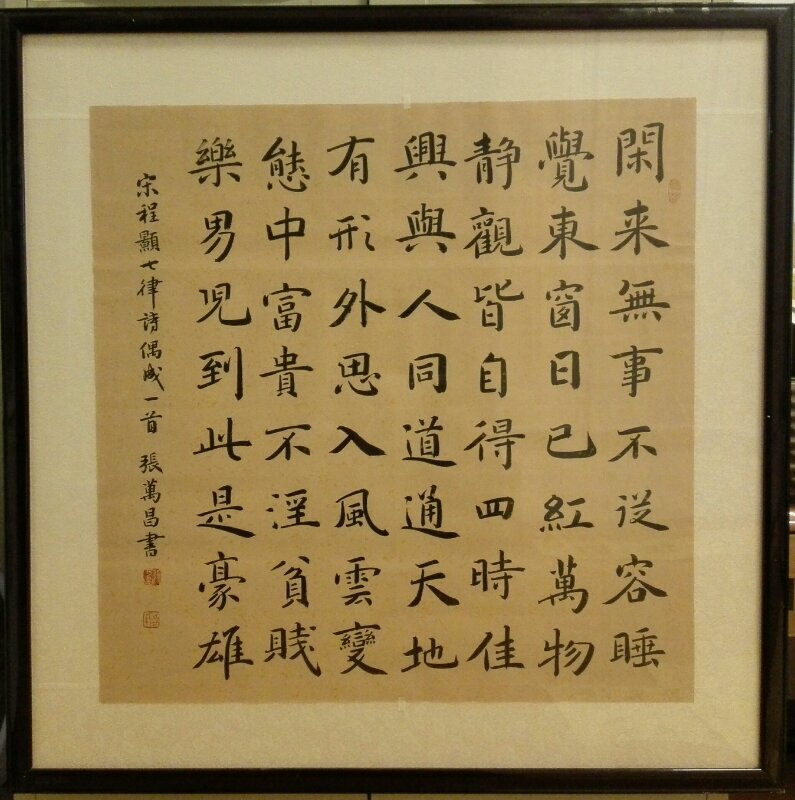 閑来無事不從容睡
覺東窗日已紅萬物
靜觀皆自得四時佳
興與人同道通天地
有形外思入風雲變
態中富貴不淫貧賤
樂男兒到此是豪雄
宋程顥七律詩偶成一首 張萬昌書